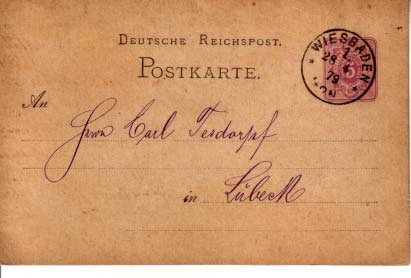 DEUTSCHE REICHSPOST.
POSTKARTE.
WIESBADEN
An
Herrn Carl Tesdorpf
in Lübeck